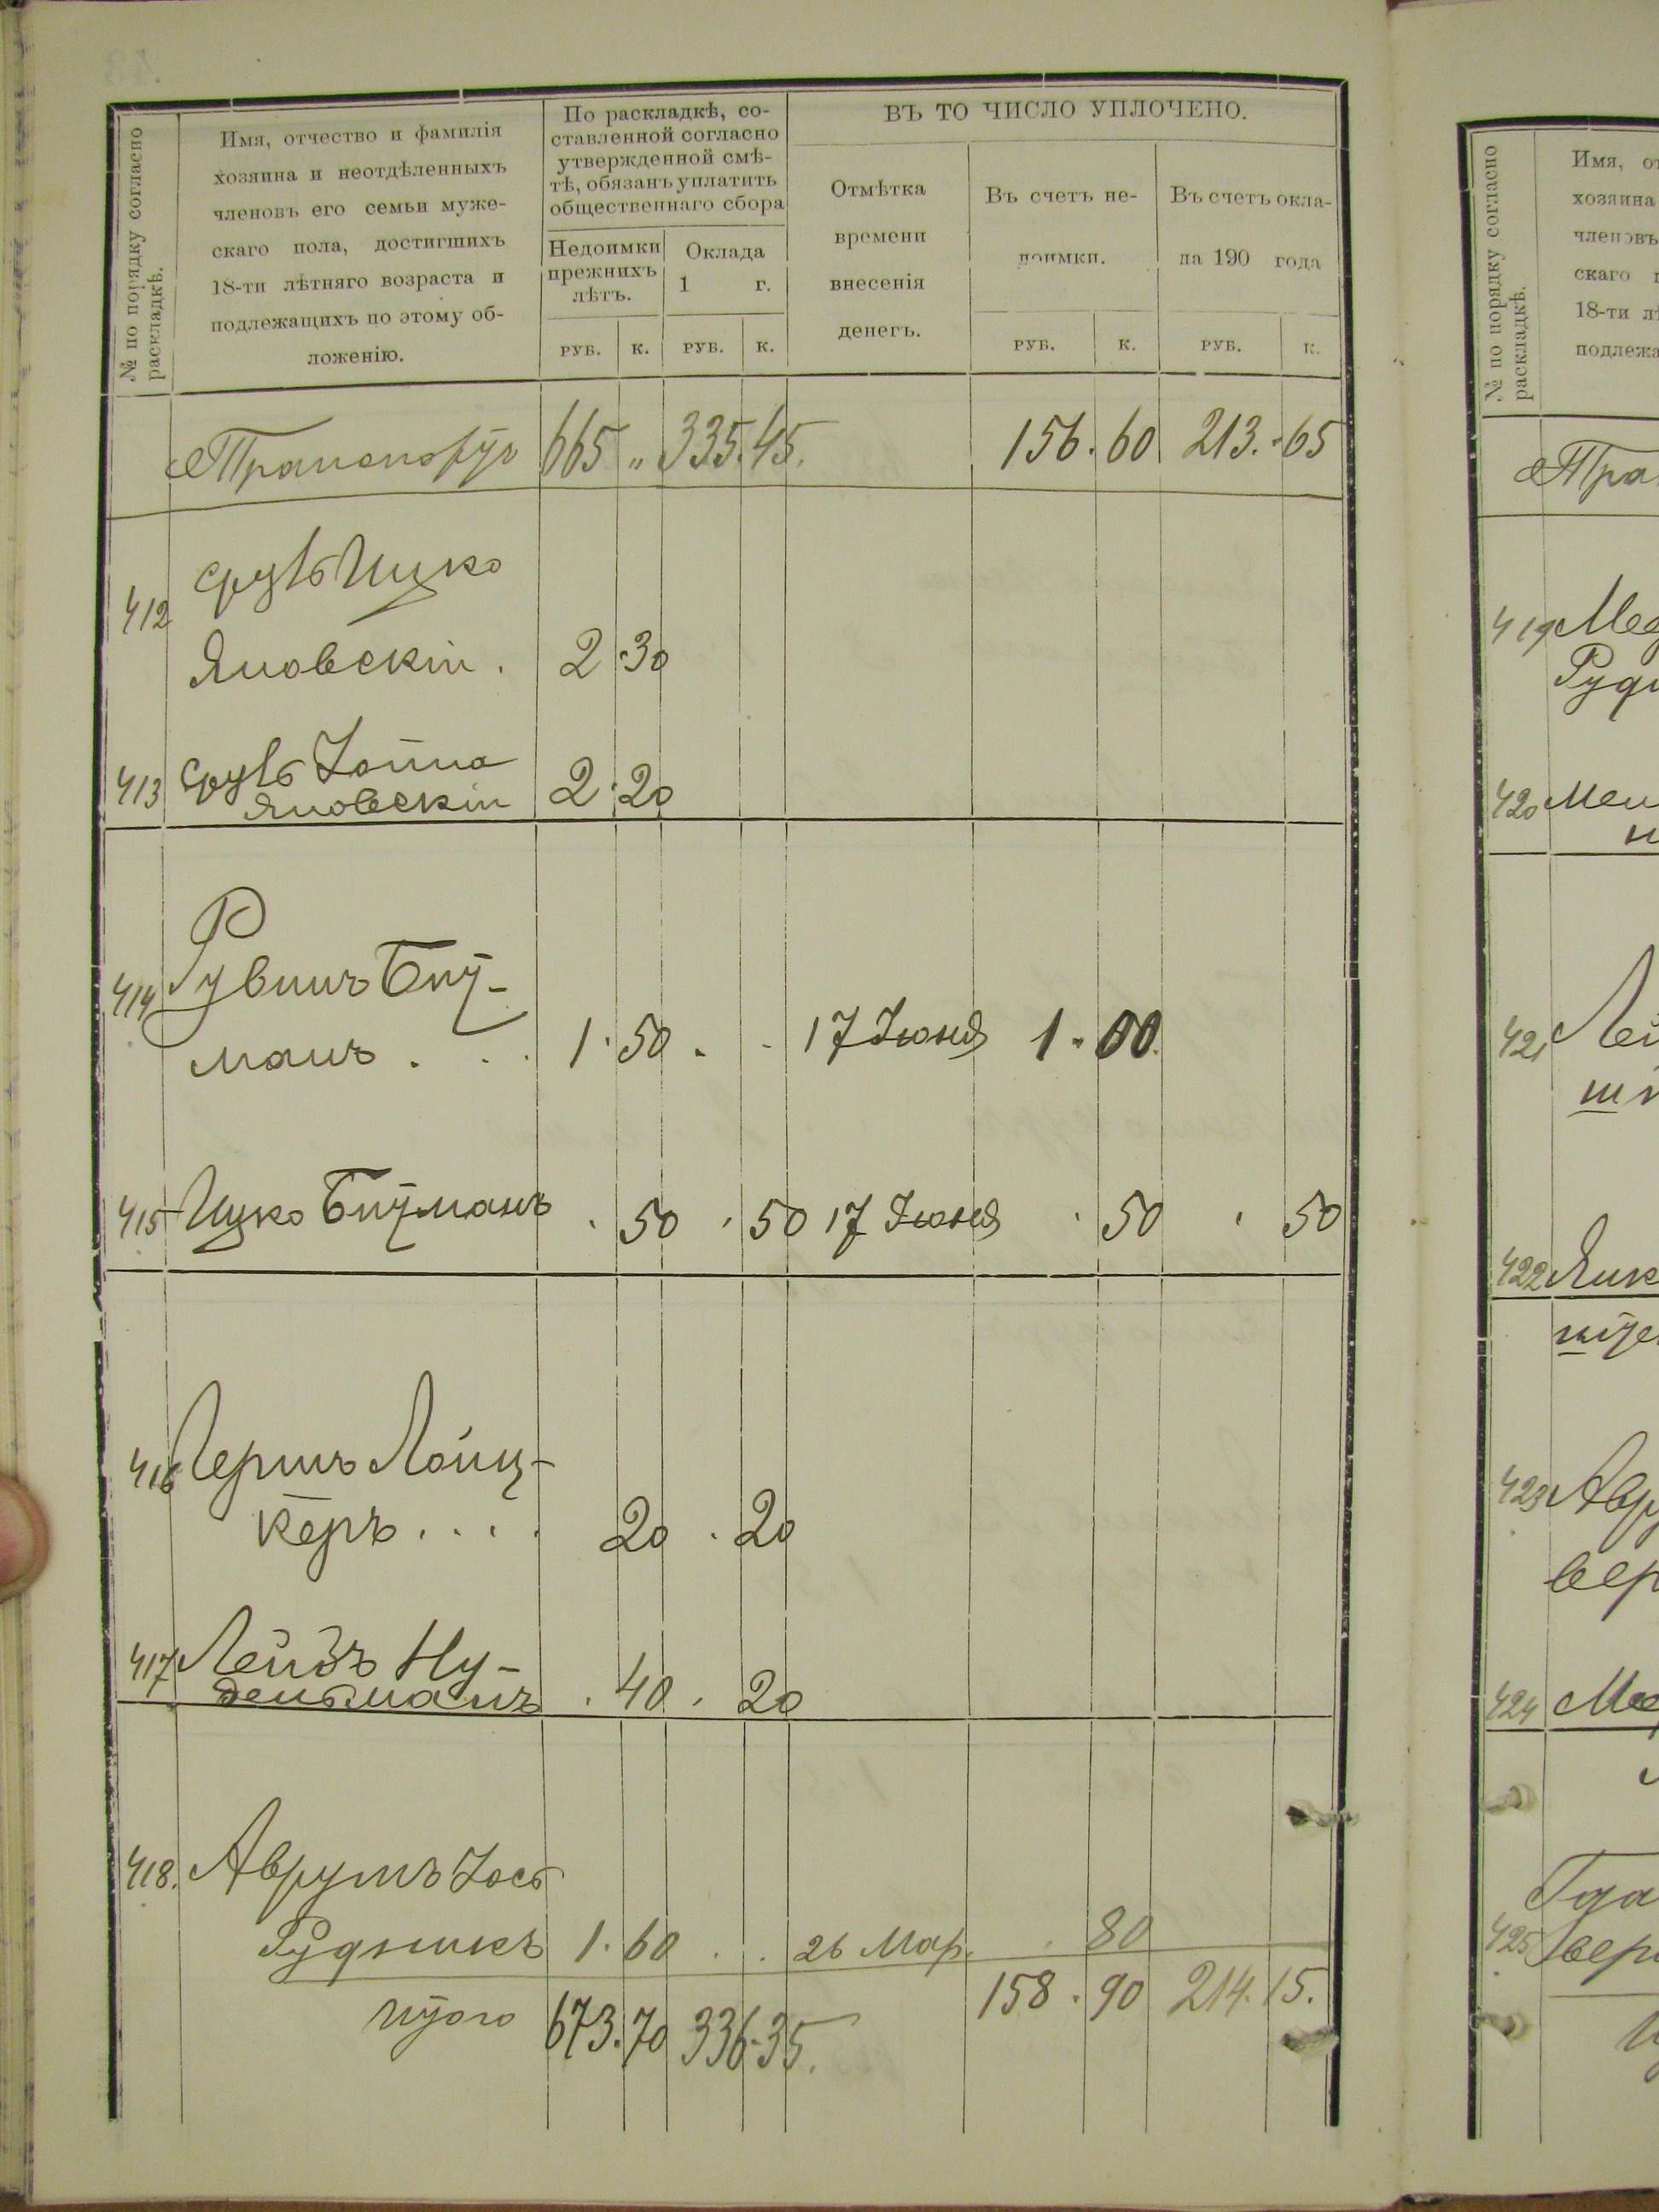 № по порядку согласно
раскладкѣ.
Имя, отчество и фамилія
хозяина и неотдѣленныхъ
членовъ его семьи муже-
скаго пола, достигшихъ
18-ти лѣтняго возраста и
подлежащихъ по этому об-
ложенію.
По раскладкѣ, со-
ставленной согласно
утвержденной смѣ-
тѣ, обязанъ уплатить
общественнаго сбора
Недоимки
прежнихъ
лѣтъ.
Оклада
1 г.
РУБ. К. РУБ. К.
ВЪ ТО ЧИСЛО УПЛОЧЕНО.
Отмѣтка
времени
внесенія
денегъ.
Въ счетъ не-
доимки.
Въ счетъ окла-
да 190 года
РУБ. К. РУБ. К.
Транспортъ 665 „ 335.45. 156.60 213.65
412 Ицко
Яновскій. 2.30
413
Яновскій 2.20
414 Рувинъ Бит-
манъ . . . 1.50 . . 17 Іюня 1.00.
415 Ицко Битманъ . 50 . 50 17 Іюня . 50 . 50
416 Гершъ Лойц-
керъ . . . . 20 . 20
417 Лейбъ Ну-
дельманъ . 40 . 20
418. Аврумъ Іось
Рудникъ 1.60 . . 26 Мар. . 80
Итого 673.70 336.35. 158.90 214.15.
№ по порядку согласно
раскладкѣ.
Имя, от
хозяина
членовъ
скаго п
18-ти лѣ
подлежа
Тра
419
Руд
420
421 Лей
422
423 Авр
вер
424
425